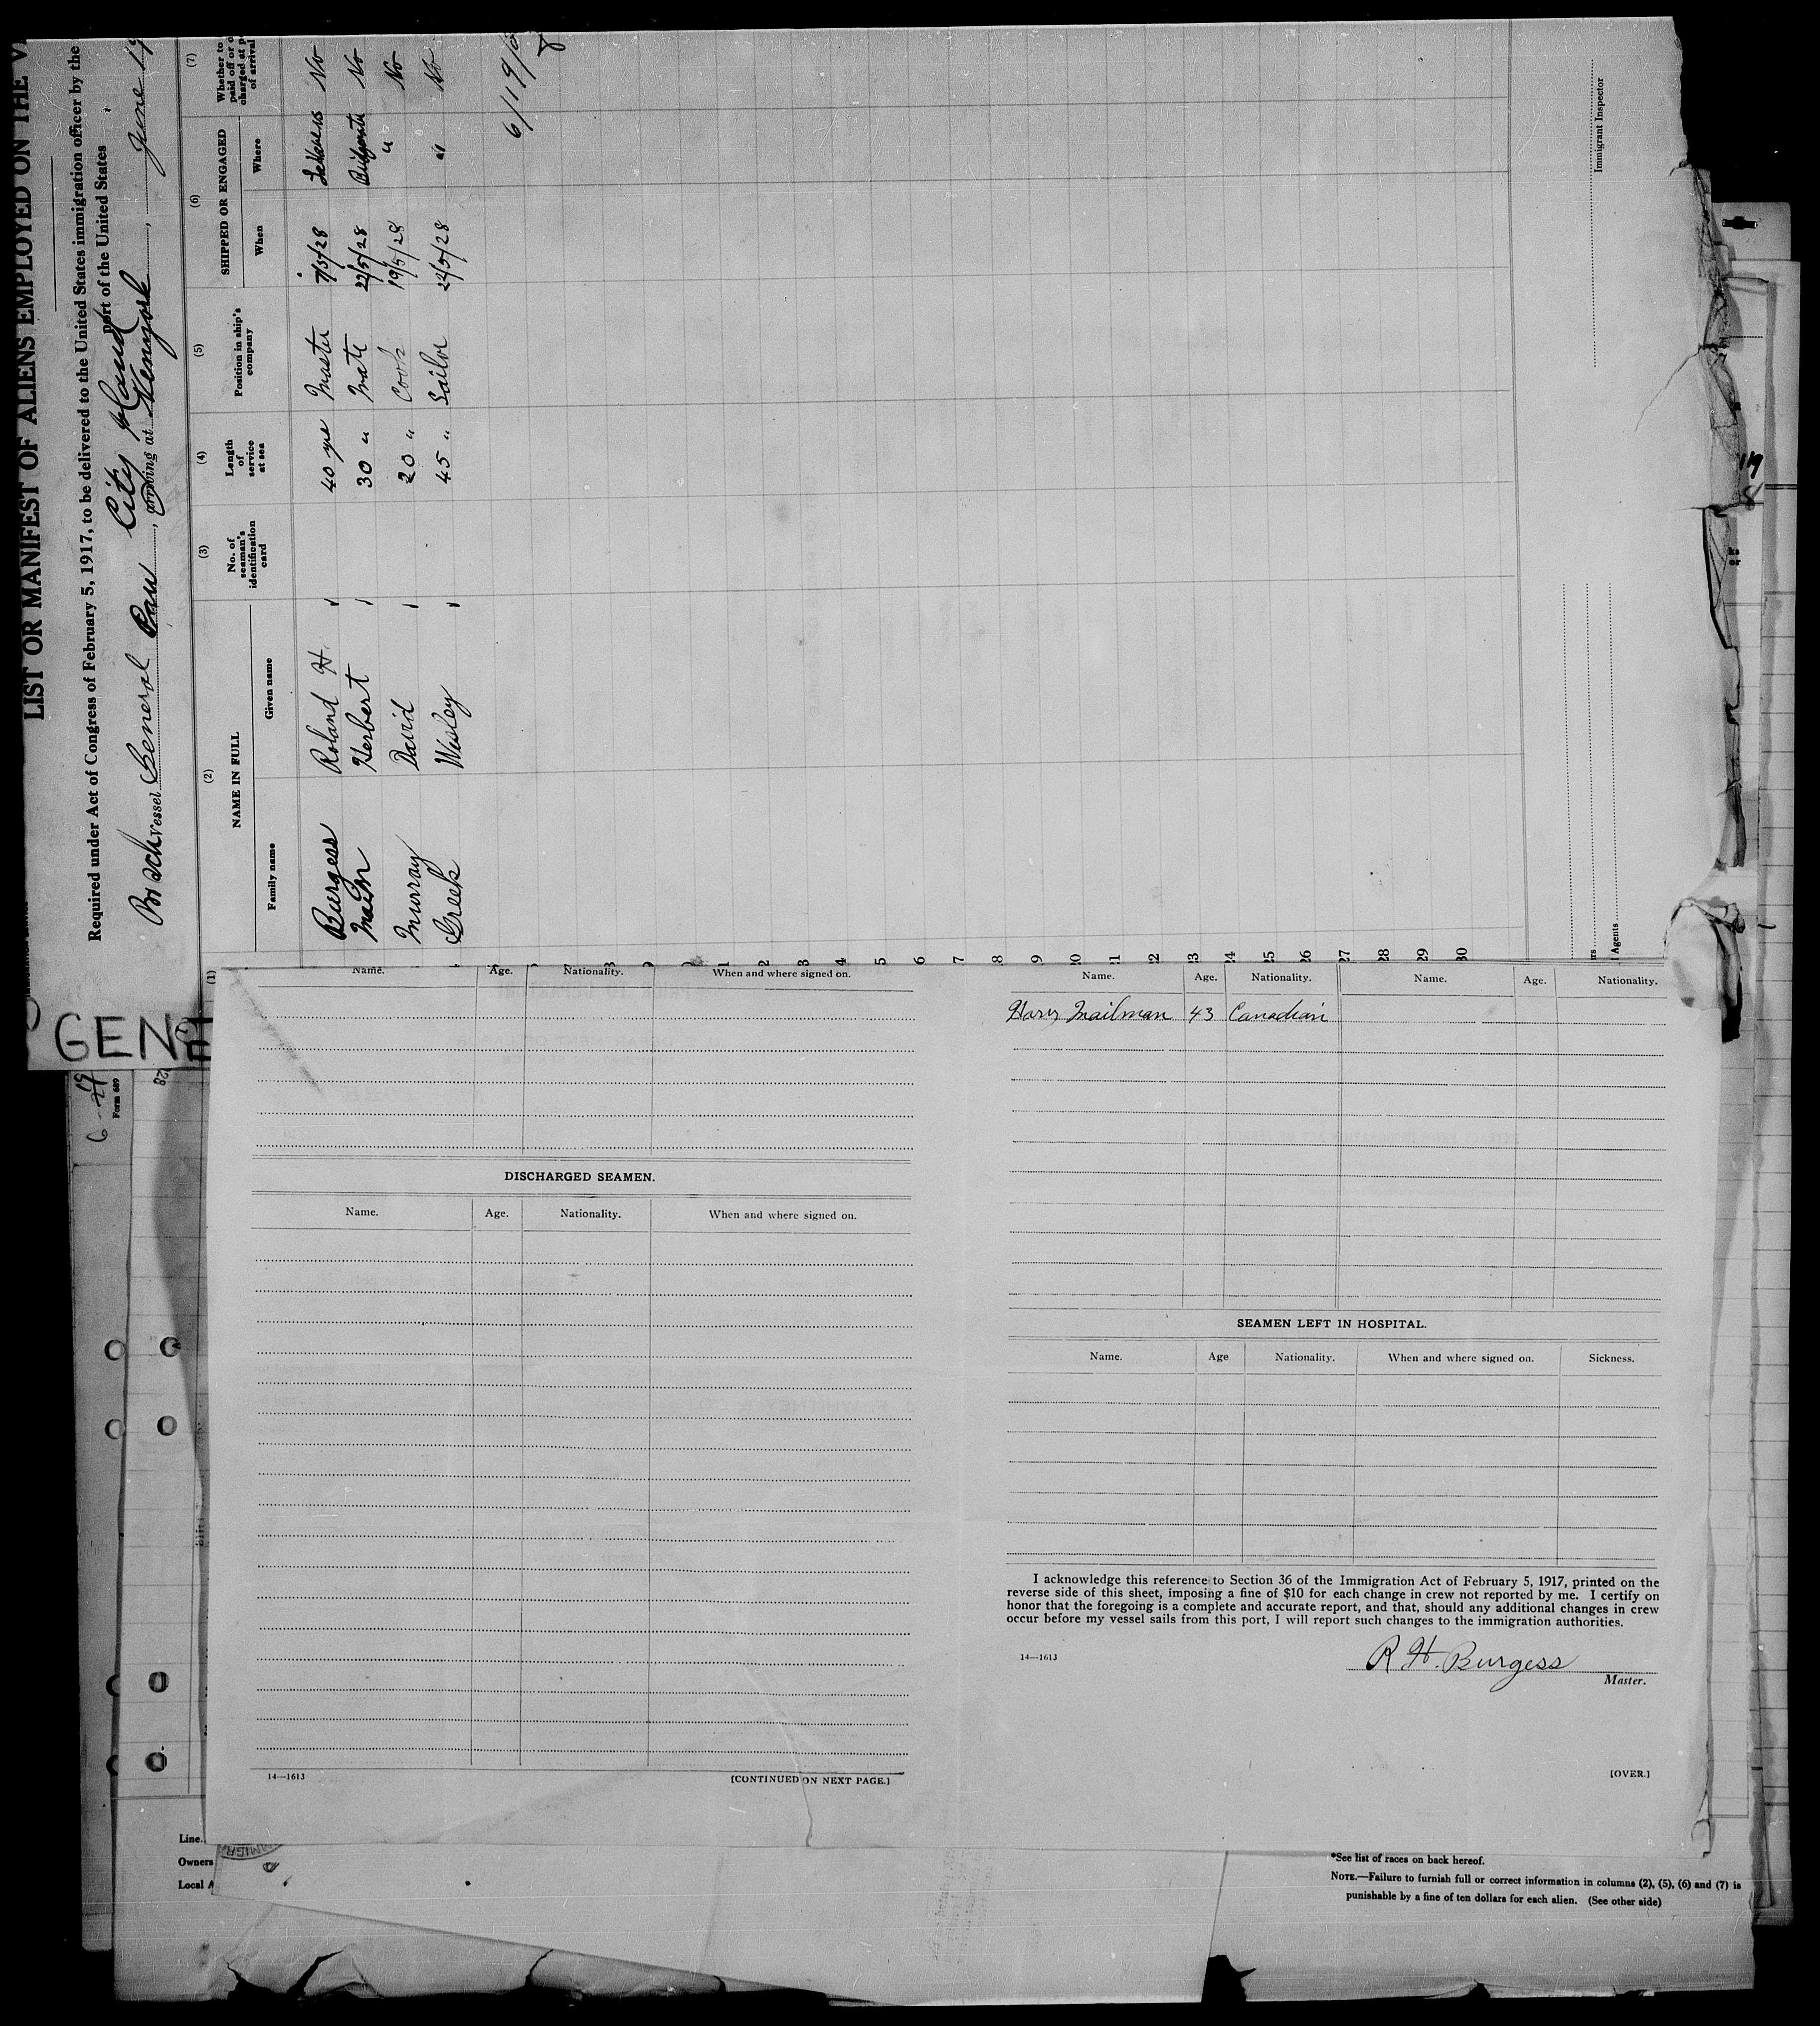 LIST OR MANIFEST OF ALIENS EMPLOYED ON THE
Required under Act of Congress of February 5, 1917, to be delivered to the United States immigration officer by the
port of the United States
Br Sch Vessel General , City Island arriving at New York , June 19
(1)
(2)
NAME IN FULL
Family name Given name
(3)
No. of seaman's identification card
(4)
Length of service at sea
(5)
Position in ship's company
(6)
SHIPPED OR ENGAGED
When Where
(7)
Whether to
paid off or
charged at
of arrival
Burgess Roland H. 40 yrs Master 7/5/28 No
Herbert 30 " Mate 22/5/28 No
Murray David 20 " Cook 19/5/28 " No
Creek Wesley 45 " Sailor 22/5/28 " No
6/19/
Immigrant Inspector
Agents
18 19 20 21 22 23 24 25 26 27 28 29 30
GEN
Form 689
Name. Age. Nationality. When and where signed on.
DISCHARGED SEAMEN.
Name. Age. Nationality. When and where signed on.
14—1613 [CONTINUED ON NEXT PAGE.]
Name. Age. Nationality. Name. Age. Nationality.
Mailman 43 Canadian
SEAMEN LEFT IN HOSPITAL.
Name. Age Nationality. When and where signed on. Sickness.
I acknowledge this reference to Section 36 of the Immigration Act of February 5, 1917, printed on the
reverse side of this sheet, imposing a fine of $10 for each change in crew not reported by me. I certify on
honor that the foregoing is a complete and accurate report, and that, should any additional changes in crew
occur before my vessel sails from this port, I will report such changes to the immigration authorities.
14—1613
R H. Burgess
Master.
[OVER.]
Line
Owners
Local A
*See list of races on back hereof.
NOTE.—Failure to furnish full or correct information in columns (2), (5), (6) and (7) is
punishable by a fine of ten dollars for each alien. (See other side)